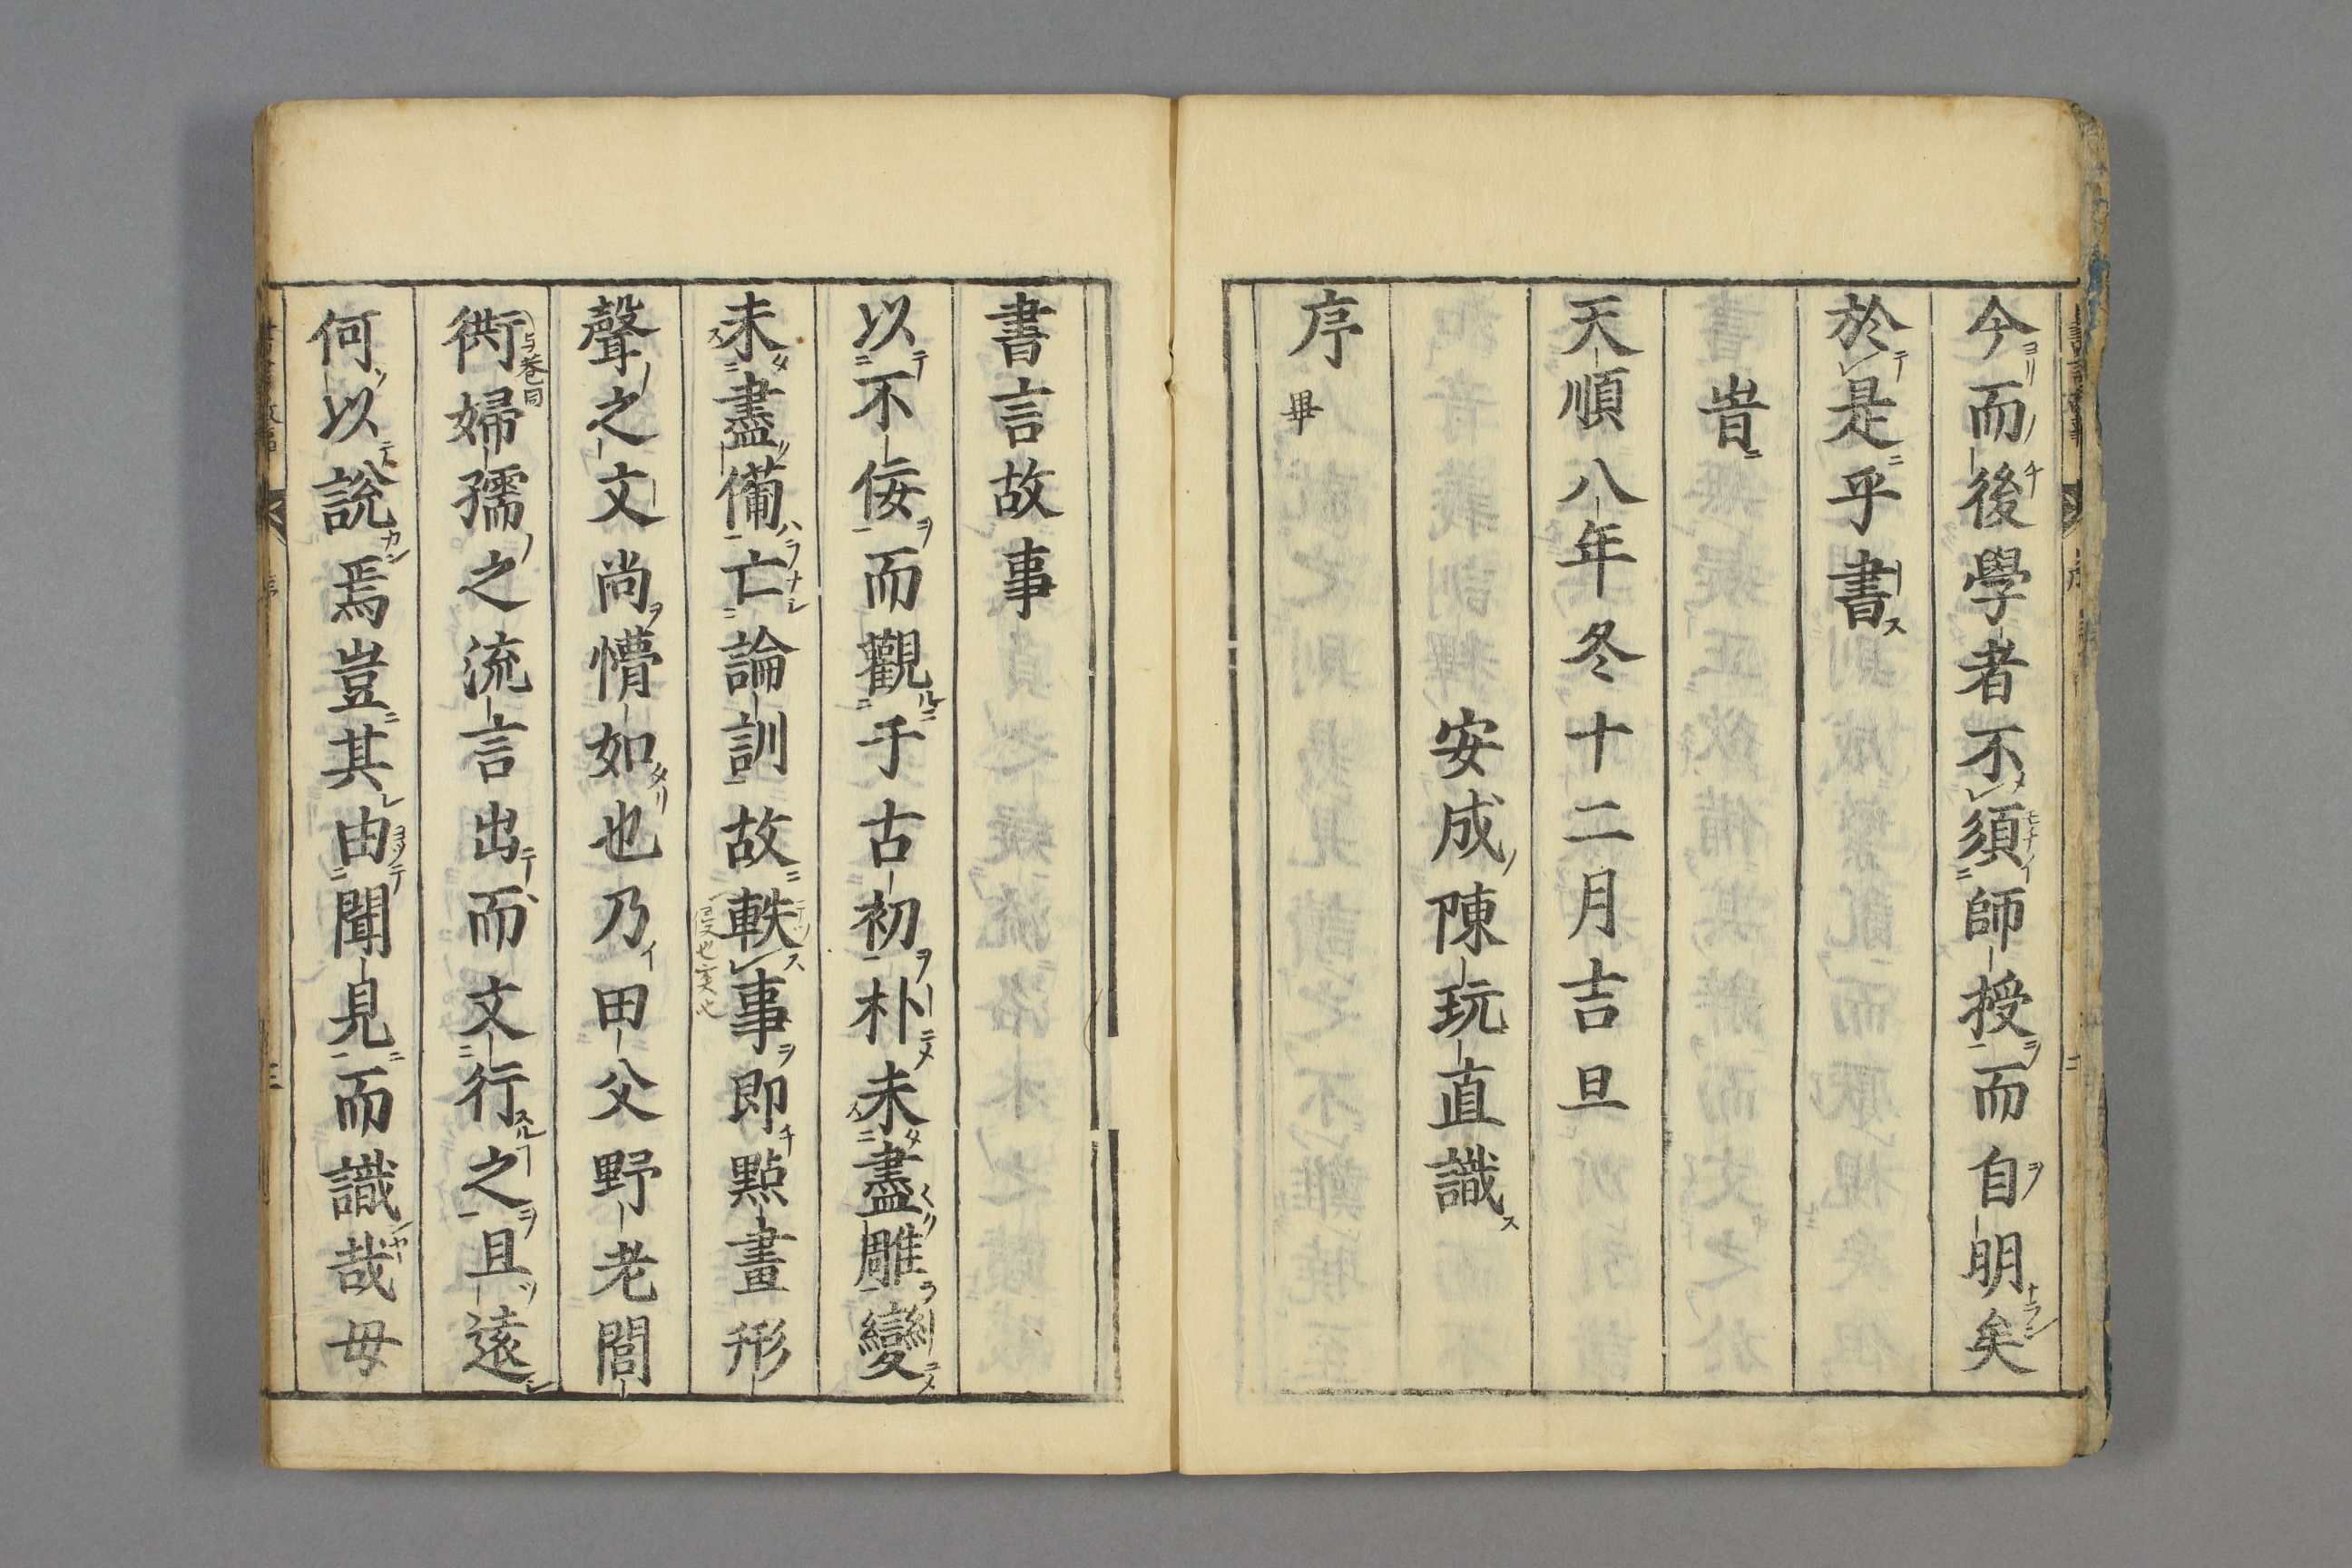 今而後學者不須師授而自明矣
於是乎書
旹
天順八年冬十二月吉旦
安成陳玩直識
序畢
書言故事
以不佞而觀于古初朴未盡雕變
未盡備亡論訓故軼事即點畫形
聲之文尚懵如也乃田父野老閭
衖婦孺之流言出而文行之且遠
何以說焉豈其由聞見而識哉毋